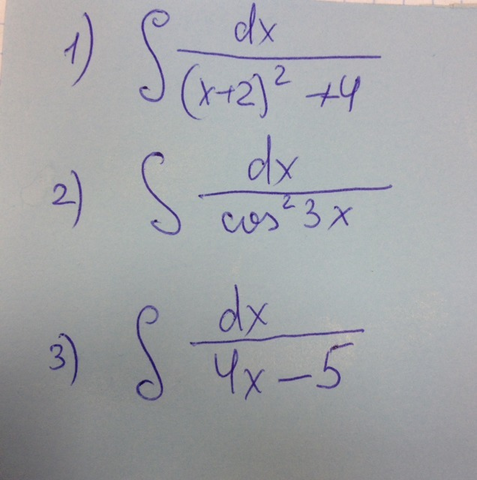 1) ∫ dx / ((x+2)² + 4)
2) ∫ dx / (cos² 3x)
3) ∫ dx / (4x − 5)